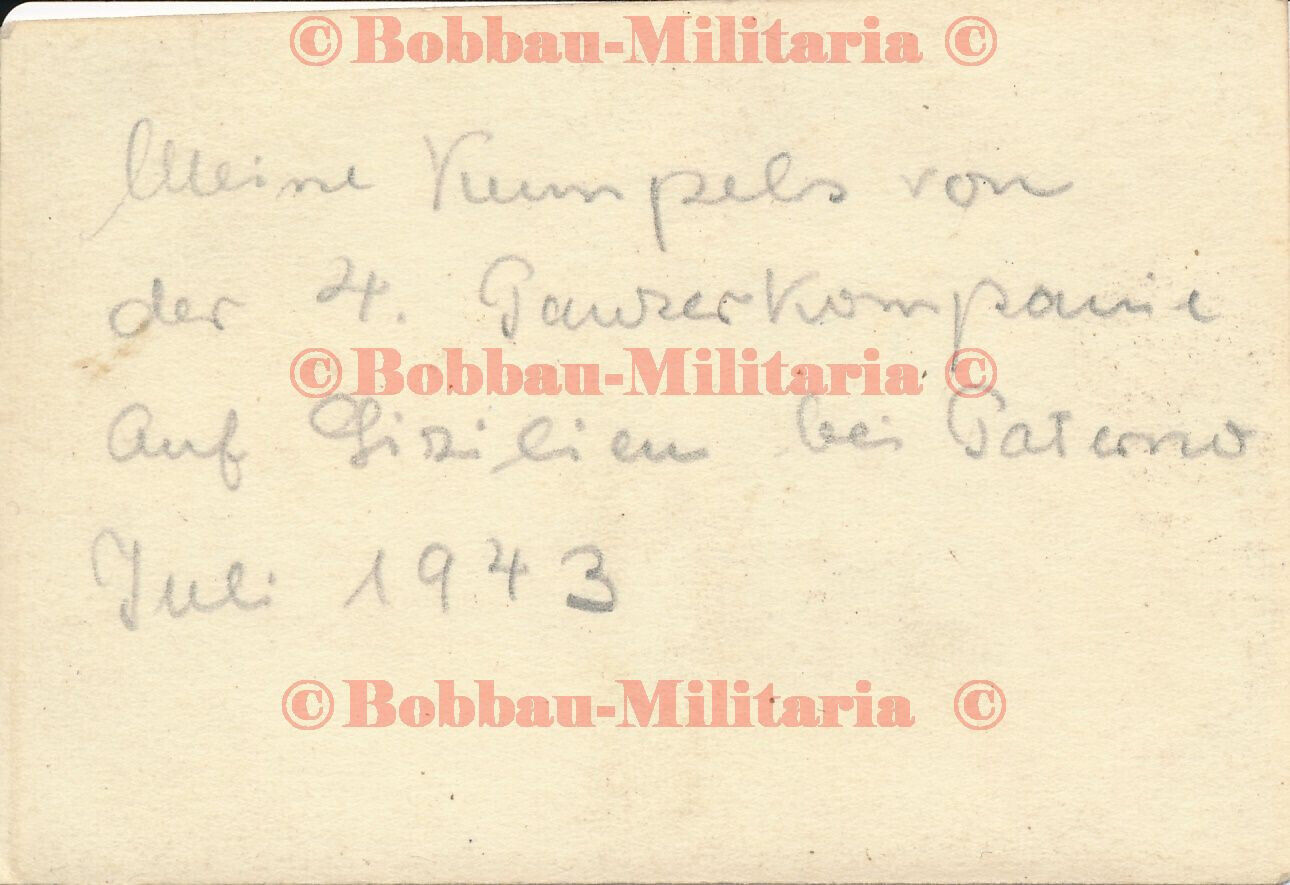 © Bobbau-Militaria ©
Meine Kumpels von
der 4. Panzerkompanie
© Bobbau-Militaria ©
auf Sizilien bei Paterno
Juli 1943
© Bobbau-Militaria ©